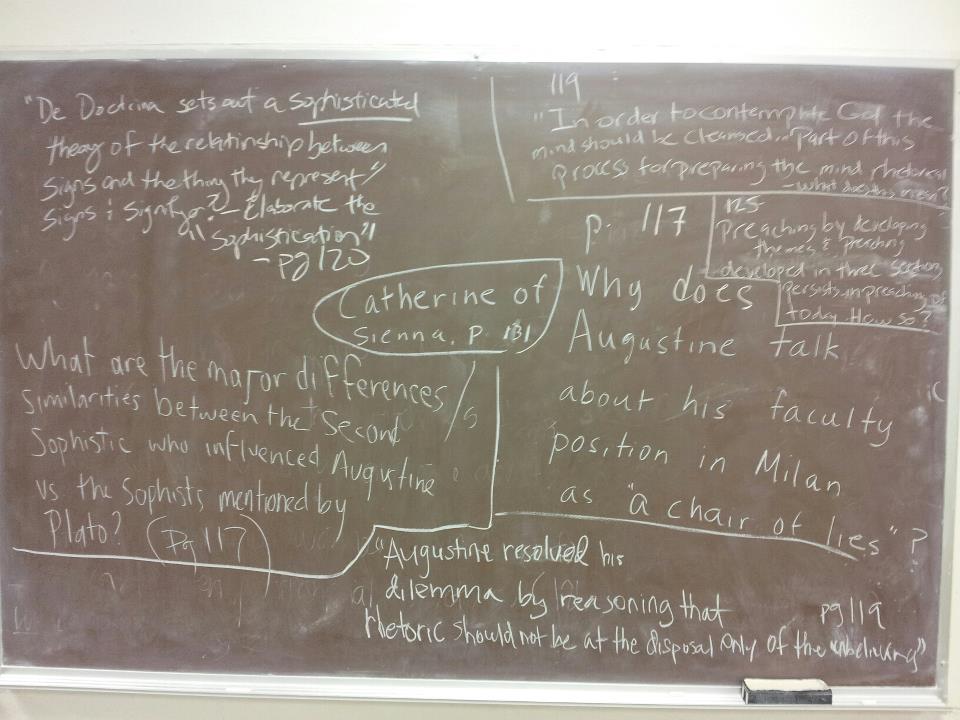 "De Doctrina sets out a sophisticated
theory of the relationship between
signs and the thing they represent"
signs & signifyer? - Elaborate the
"sophistication"
- pg 120
119
"In order to contemplate God the
mind should be cleansed... Part of this
process for preparing the mind rhetoric
- what does this mean?
125
Preaching by developing
themes & preaching
developed in three sections
persists in preaching of
today. How so?
Catherine of
Sienna, p. 131
p. 117
Why does
Augustine talk
about his faculty
position in Milan
as "a chair of lies"?
What are the major differences/
similarities between the Second
Sophistic who influenced Augustine
vs the Sophists mentioned by
Plato? (pg 117)
"Augustine resolved his
dilemma by reasoning that
rhetoric should not be at the disposal only of the unbelieving"
pg 119